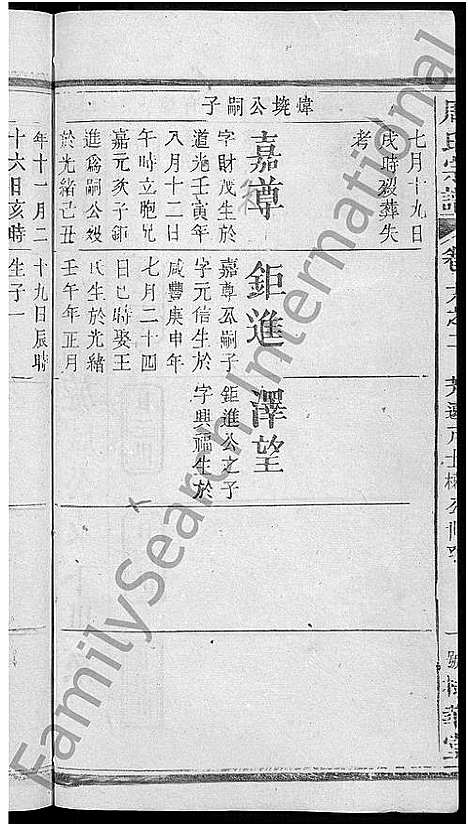 周氏宗譜
卷
七月十九日
戌時歿葬失
考
煒堯公嗣子
嘉尊
字財茂生於
道光壬寅年
八月十二日
午時立胞兄
嘉元次子鉅
進爲嗣公歿
於光緒己丑
年十一月二
十六日亥時
鉅進
嘉尊公嗣子
字元信生於
咸豐庚申年
七月二十四
日巳時娶王
氏生於光緒
壬午年正月
十九日辰時
生子一
澤望
鉅進公之子
字興福生於
FamilySearch International